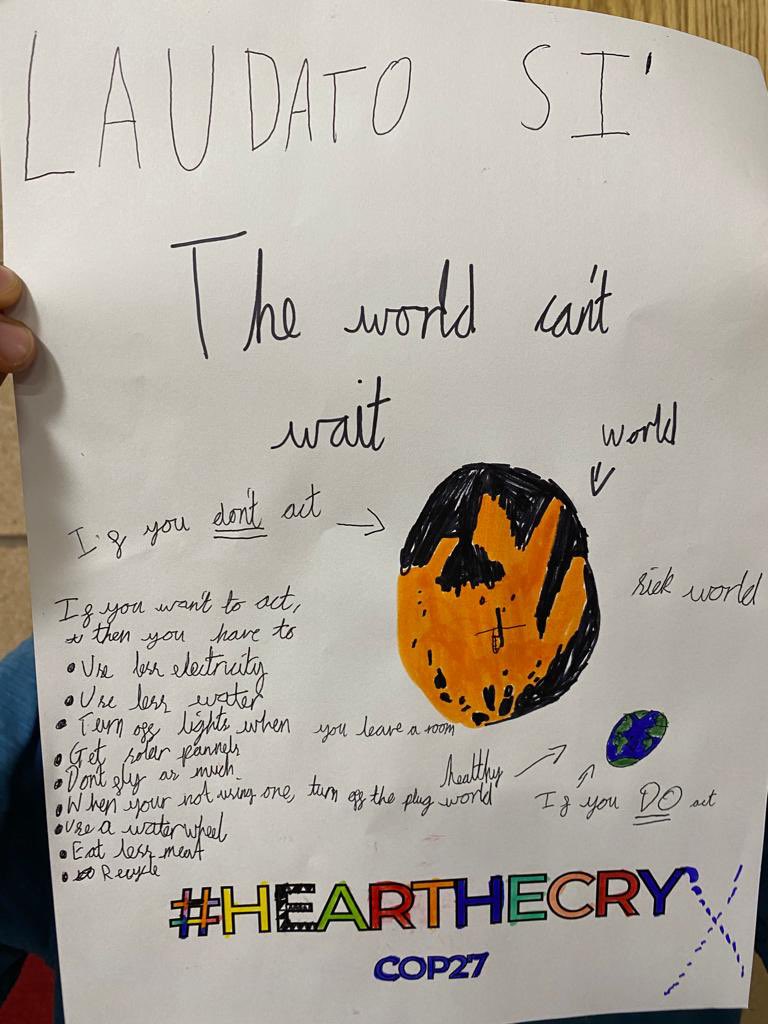 LAUDATO SI'
The world can't
wait
world
If you don't act
sick world
If you wan't to act,
then you have to
• Use less electricity
• Use less water
• Turn off lights when you leave a room
• Get solar pannels
• Dont fly as much
• When your not using one, turn off the plug
healthy
world
If you DO act
• Use a waterwheel
• Eat less meat
• Recycle
#HEARTHECRY
COP27